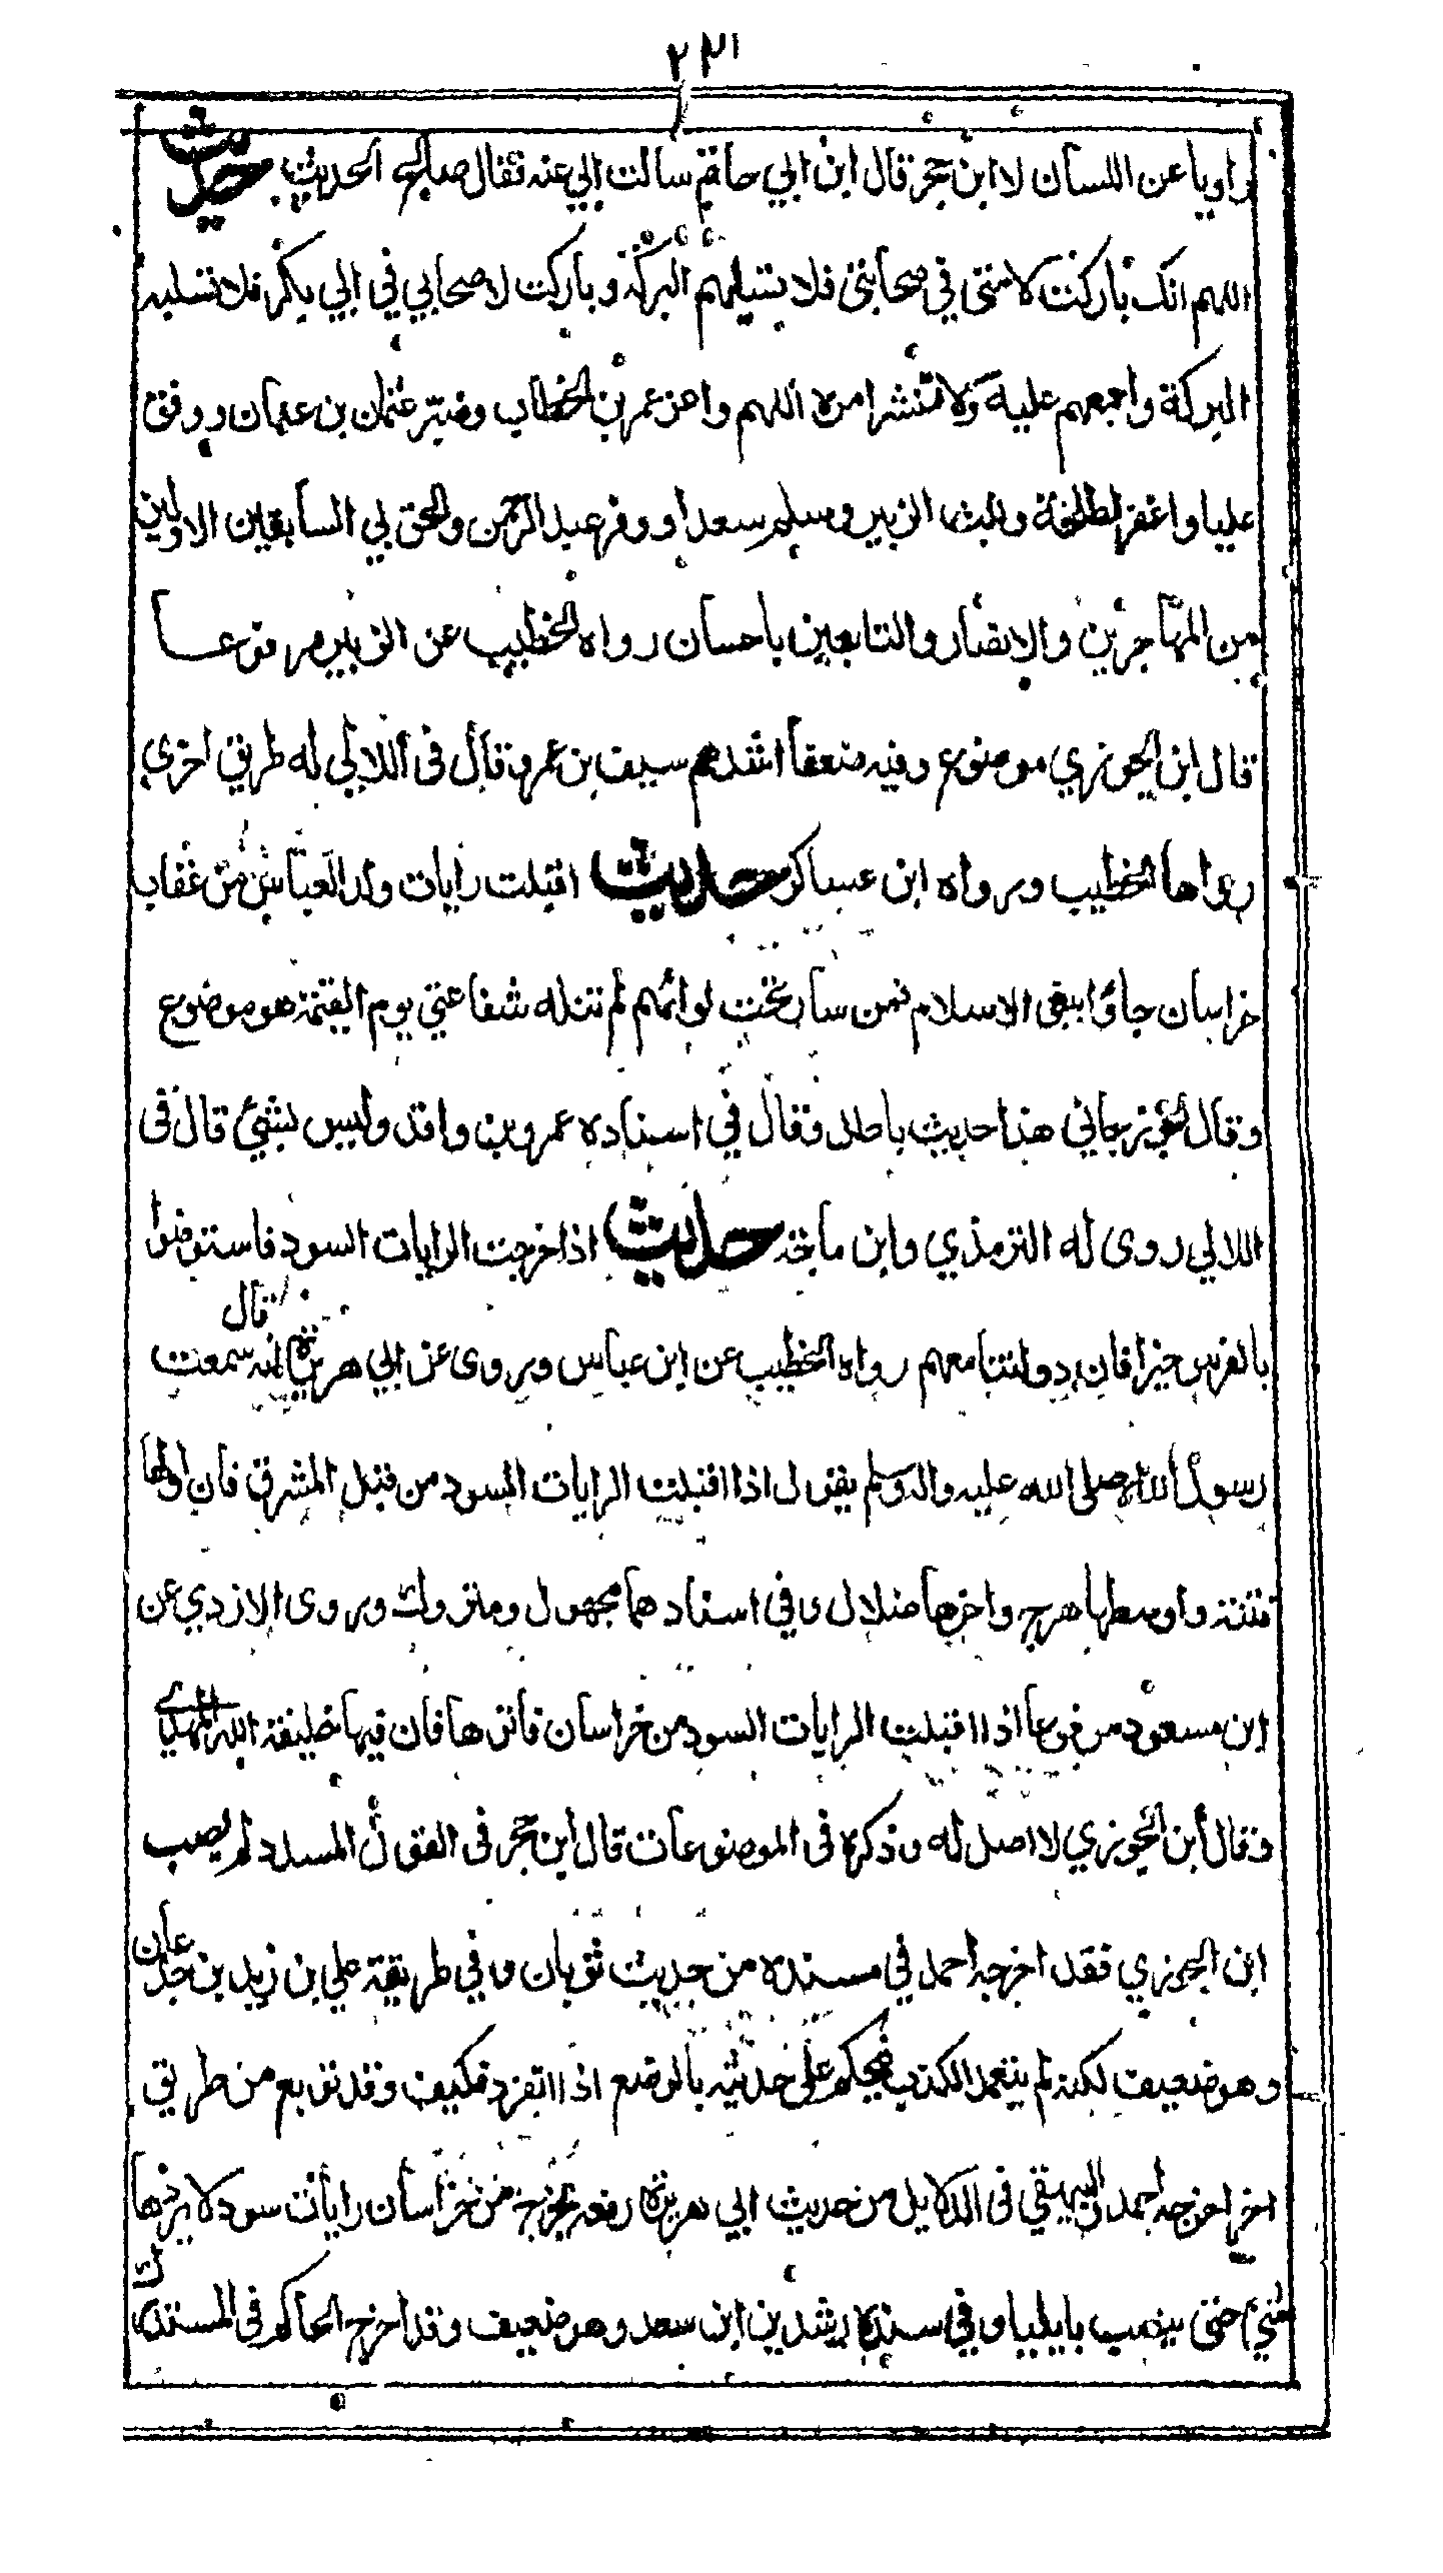 ٢٣١
راويا عن اللسان لا ابن حجر قال ابن ابي حاتم سالت ابي عنه فقال صالح الحديث حديث
اللهم انك باركت لامتي في صحابتي فلا تسلبهم البركة وباركت لاصحابي في ابي بكر فلا تسلبه
البركة واجمعهم عليه ولا تنشر امره اللهم واعز عمر بن الخطاب وصبر عثمان بن عفان ووفق
عليا واغفر لطلحة وثبت الزبير وسلم سعدا ووفر عبد الرحمن والحق بي السابقين الاولين
من المهاجرين والانصار والتابعين باحسان رواه الخطيب عن الزبير مرفوعا
قال ابن الجوزي موضوع وفيه ضعفا اشدهم سيف بن عمر وقال في اللالي له طريق اخرى
رواها الخطيب ورواه ابن عساكر حديث اقبلت رايات ولد العباس من عقاب
خراسان جاؤا بنعي الاسلام فمن سار تحت لوائهم لم تنله شفاعتي يوم القيمة هو موضوع
وقال الجوزجاني هذا حديث باطل وقال في اسناده عمرو بن واقد وليس بشيء قال في
اللالي روى له الترمذي وابن ماجة حديث اذا خرجت الرايات السود فاستوصوا
بالفرس خيرا فان دولتنا معهم رواه الخطيب عن ابن عباس ويروى عن ابي هريرة انه قال سمعت
رسول الله صلى الله عليه واله وسلم يقول اذا اقبلت الرايات السود من قبل المشرق فان اولها
فتنة واوسطها هرج واخرها ضلال وفي اسنادهما مجهول ومتروك وروى الازدي عن
ابن مسعود مرفوعا اذا اقبلت الرايات السود من خراسان فاتوها فان فيها خليفة الله المهدي
وقال ابن الجوزي لا اصل له وذكره في الموضوعات قال ابن حجر في القول المسدد لم يصب
ابن الجوزي فقد اخرجه احمد في مسنده من حديث ثوبان وفي طريقة علي بن زيد بن جدعان
وهو ضعيف لكنه لم يتعمد الكذب فيحكم على حديثه بالوضع اذا انفرد فكيف وقد توبع من طريق
اخر اخرجه احمد والبيهقي في الدلايل من حديث ابي هريرة رفعه تخرج من خراسان رايات سود لا يردها
شيء حتى تنصب بايليا وفي سنده رشدين ابن سعد وهو ضعيف وقد اخرج الحاكم في المستدرك